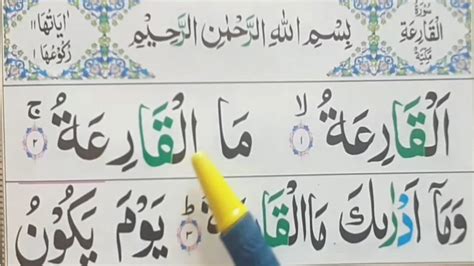 سُوْرَةُ الْقَارِعَةِ مَكِّيَّةٌ
بِسْمِ اللهِ الرَّحْمٰنِ الرَّحِيْمِ
اٰيَاتُهَا ١١ رُكُوْعُهَا ١
اَلْقَارِعَةُ ۙ ١ مَا الْقَارِعَةُ ۚ ٢
وَمَآ اَدْرٰىكَ مَا ؕ ٣ يَوْمَ يَكُوْنُ